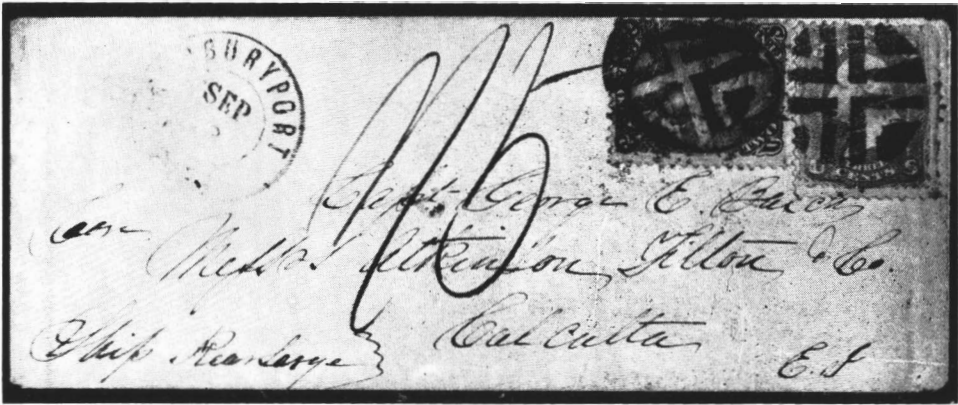 BURYPORT
SEP
Capt. George E.
Care Messrs Atkinson, Tilton & Co.
Calcutta
Ship Kearsarge
E. I